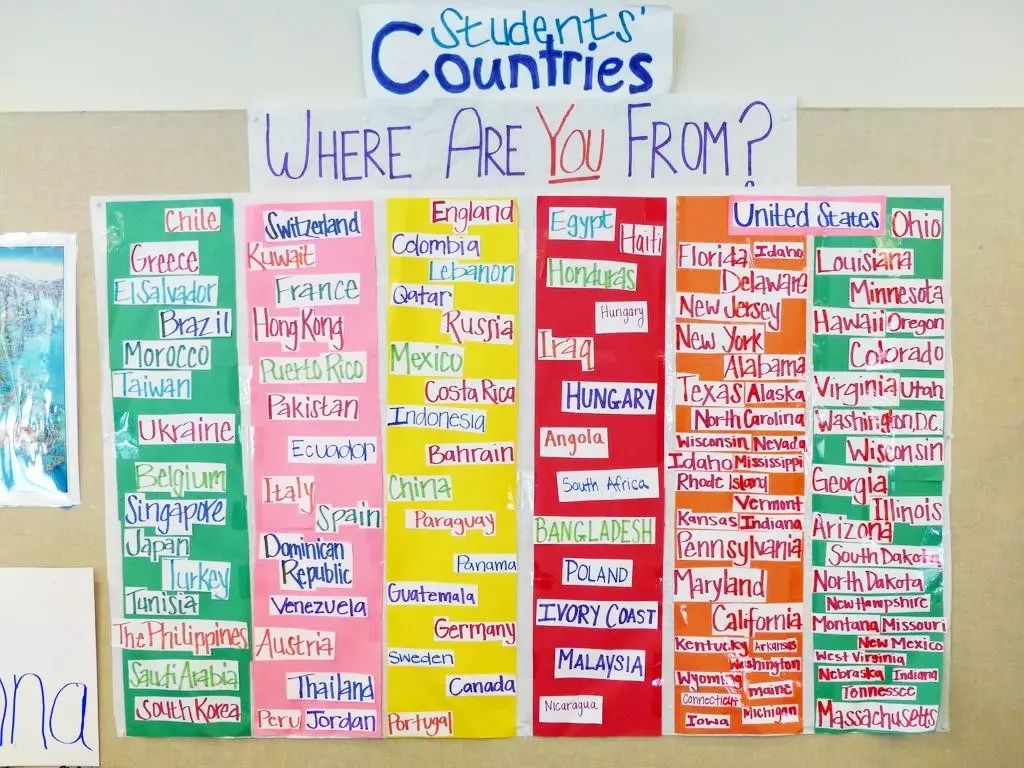 Students'
Countries
WHERE ARE YOU FROM?
Chile
Greece
El Salvador
Brazil
Morocco
Taiwan
Ukraine
Belgium
Singapore
Japan
Turkey
Tunisia
The Philippines
Saudi Arabia
South Korea
Switzerland
Kuwait
France
Hong Kong
Puerto Rico
Pakistan
Ecuador
Italy
Spain
Dominican
Republic
Venezuela
Austria
Thailand
Peru Jordan
England
Colombia
Lebanon
Qatar
Russia
Mexico
Costa Rica
Indonesia
Bahrain
China
Paraguay
Panama
Guatemala
Germany
Sweden
Canada
Portugal
Egypt
Haiti
Honduras
Hungary
Iraq
HUNGARY
Angola
South Africa
BANGLADESH
POLAND
IVORY COAST
MALAYSIA
Nicaragua
United States
Florida Idaho
Delaware
New Jersey
New York
Alabama
Texas Alaska
North Carolina
Wisconsin Nevada
Idaho Mississippi
Rhode Island
Vermont
Kansas Indiana
Pennsylvania
Maryland
California
Kentucky Arkansas
Washington
Wyoming maine
Connecticut
Michigan
Iowa
Ohio
Louisiana
Minnesota
Hawaii Oregon
Colorado
Virginia Utah
Washington, D.C.
Wisconsin
Georgia
Illinois
Arizona
South Dakota
North Dakota
New Hampshire
Montana Missouri
New Mexico
West Virginia
Nebraska Indiana
Tennessee
Massachusetts
na